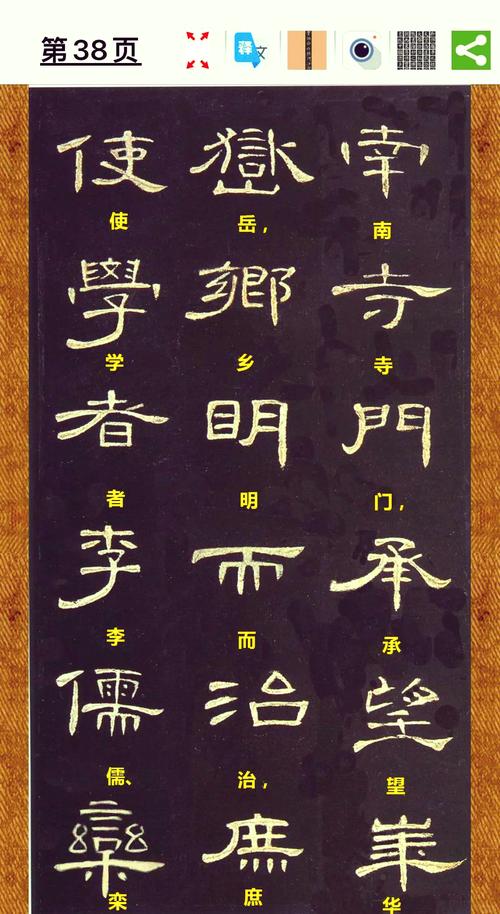 第38页
释文
南寺門承望華
南寺门，承望华
嶽鄉明而治庶
岳，乡明而治，庶
使學者李儒欒
使学者李儒、栾